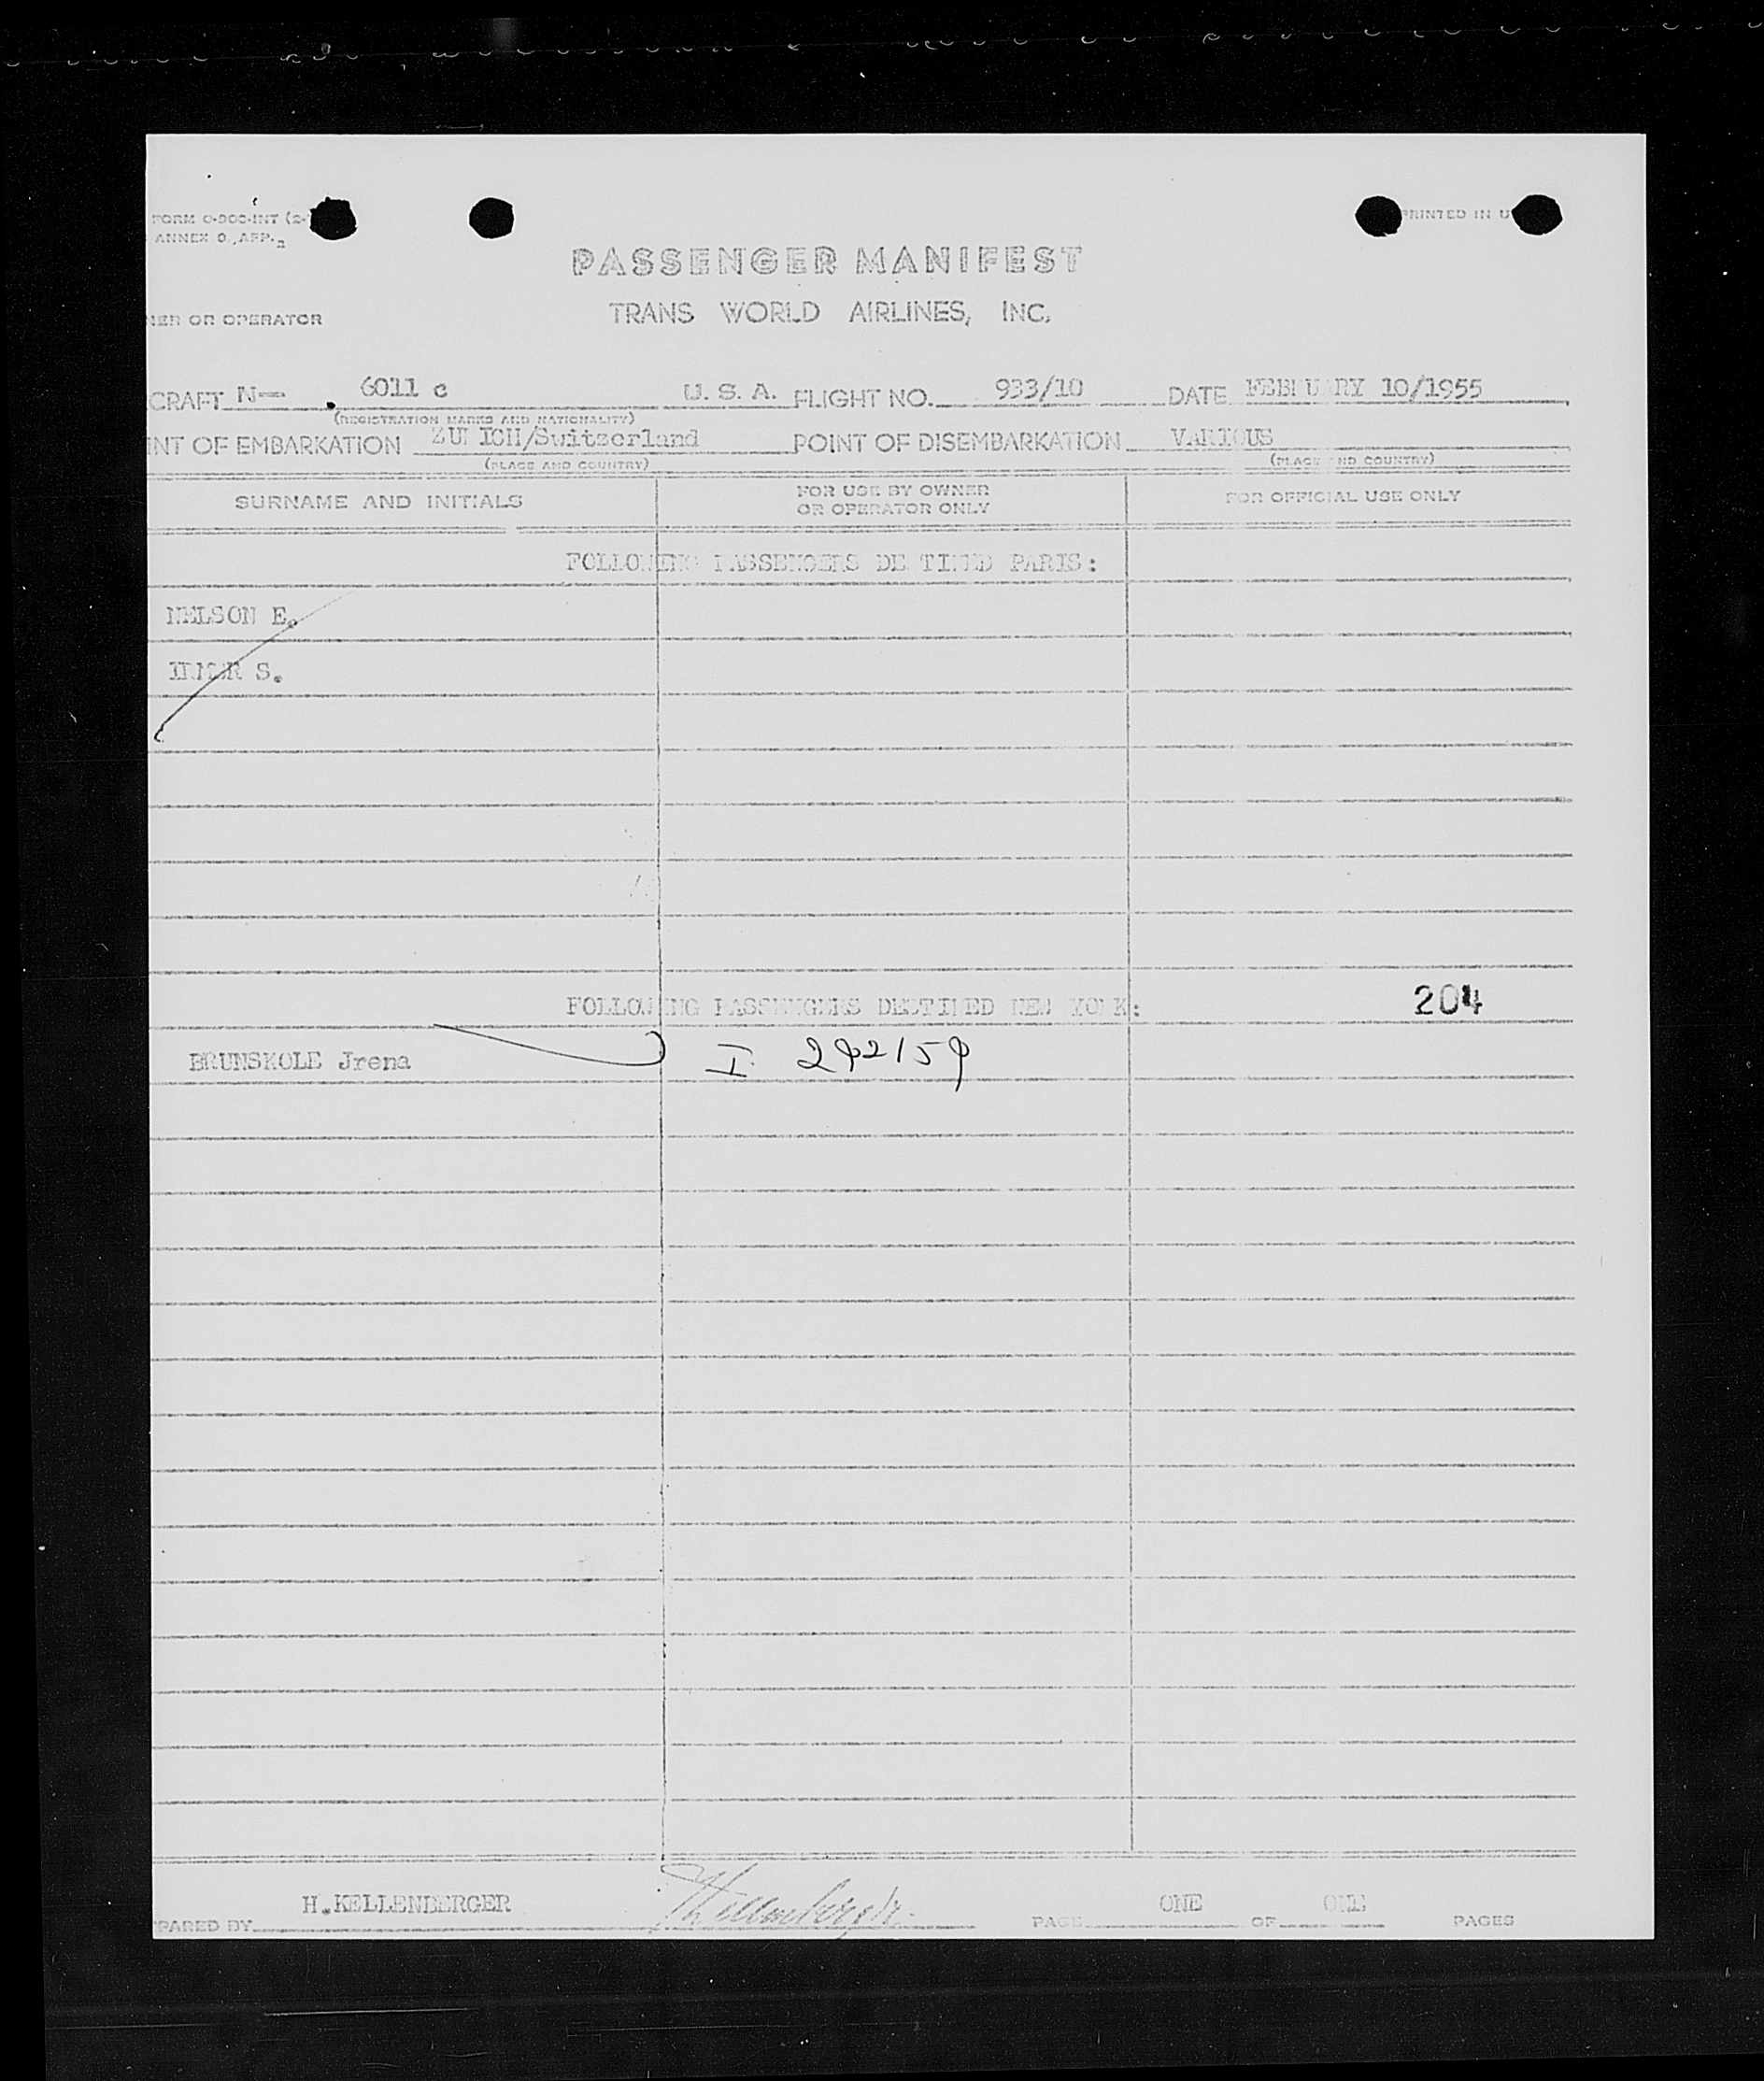 FORM O-900-INT (2-
ANNEX 9, APP. 2
PRINTED IN U
PASSENGER MANIFEST
NER OR OPERATOR TRANS WORLD AIRLINES, INC.
CRAFT N— 6011 c U. S. A. FLIGHT NO. 933/10 DATE FEBRUARY 10/1955
(REGISTRATION MARKS AND NATIONALITY)
INT OF EMBARKATION ZURICH/Switzerland POINT OF DISEMBARKATION VARIOUS
(PLACE AND COUNTRY) (PLACE AND COUNTRY)
SURNAME AND INITIALS FOR USE BY OWNER OR OPERATOR ONLY FOR OFFICIAL USE ONLY
FOLLOWING PASSENGERS DESTINED PARIS:
NELSON E.
S.
FOLLOWING PASSENGERS DESTINED NEW YORK: 204
BRUNSKOLE Jrena I 292159
H.KELLENBERGER HKellenberger ONE ONE
PARED BY PAGE OF PAGES